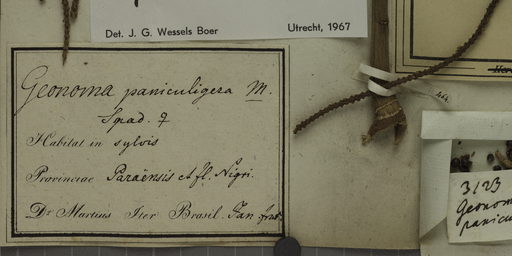 Det. J. G. Wessels Boer Utrecht, 1967
Geonoma paniculigera M.
Spad. ♀
Habitat in sylvis
Provinciae Paraënsis et fl. Nigri.
Dr Martius Iter Brasil. Jan
3123
Geonom
panicu